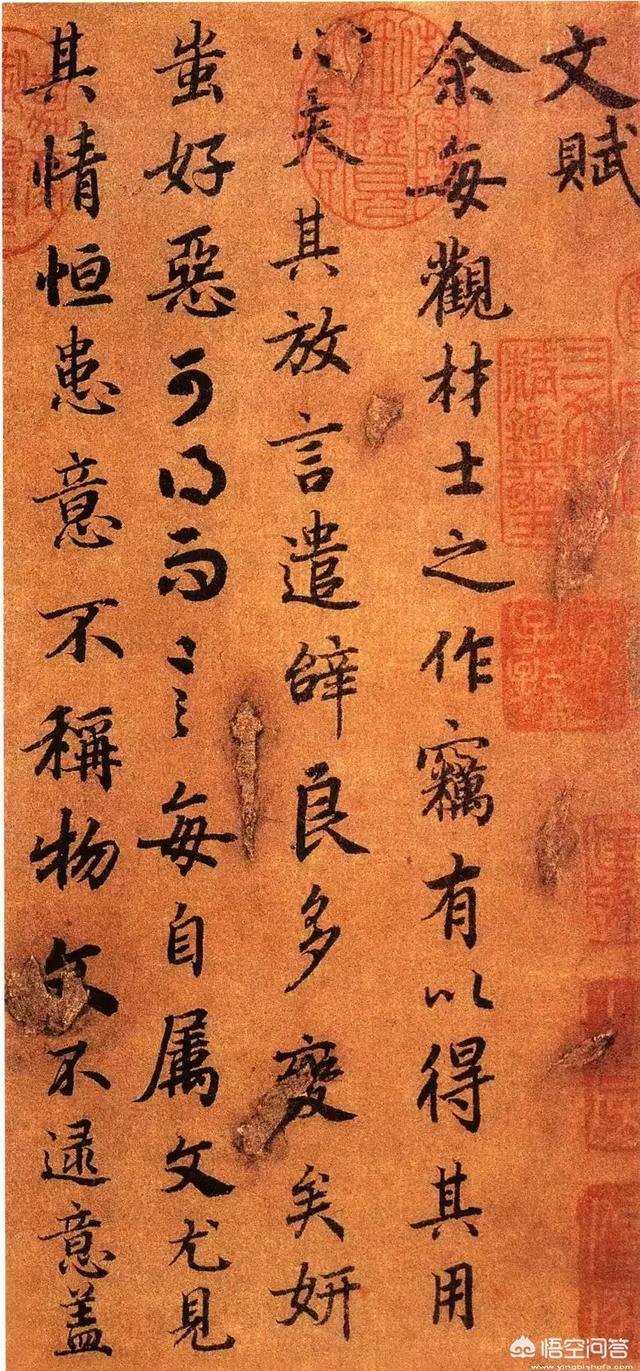 文賦
余每觀材士之作竊有以得其用
心夫其放言遣辭良多變矣妍
蚩好惡可得而言每自屬文尤見
其情恒患意不稱物文不逮意蓋
三希堂精鑒璽
宜子孫
悟空问答
www.yingbishufa.com